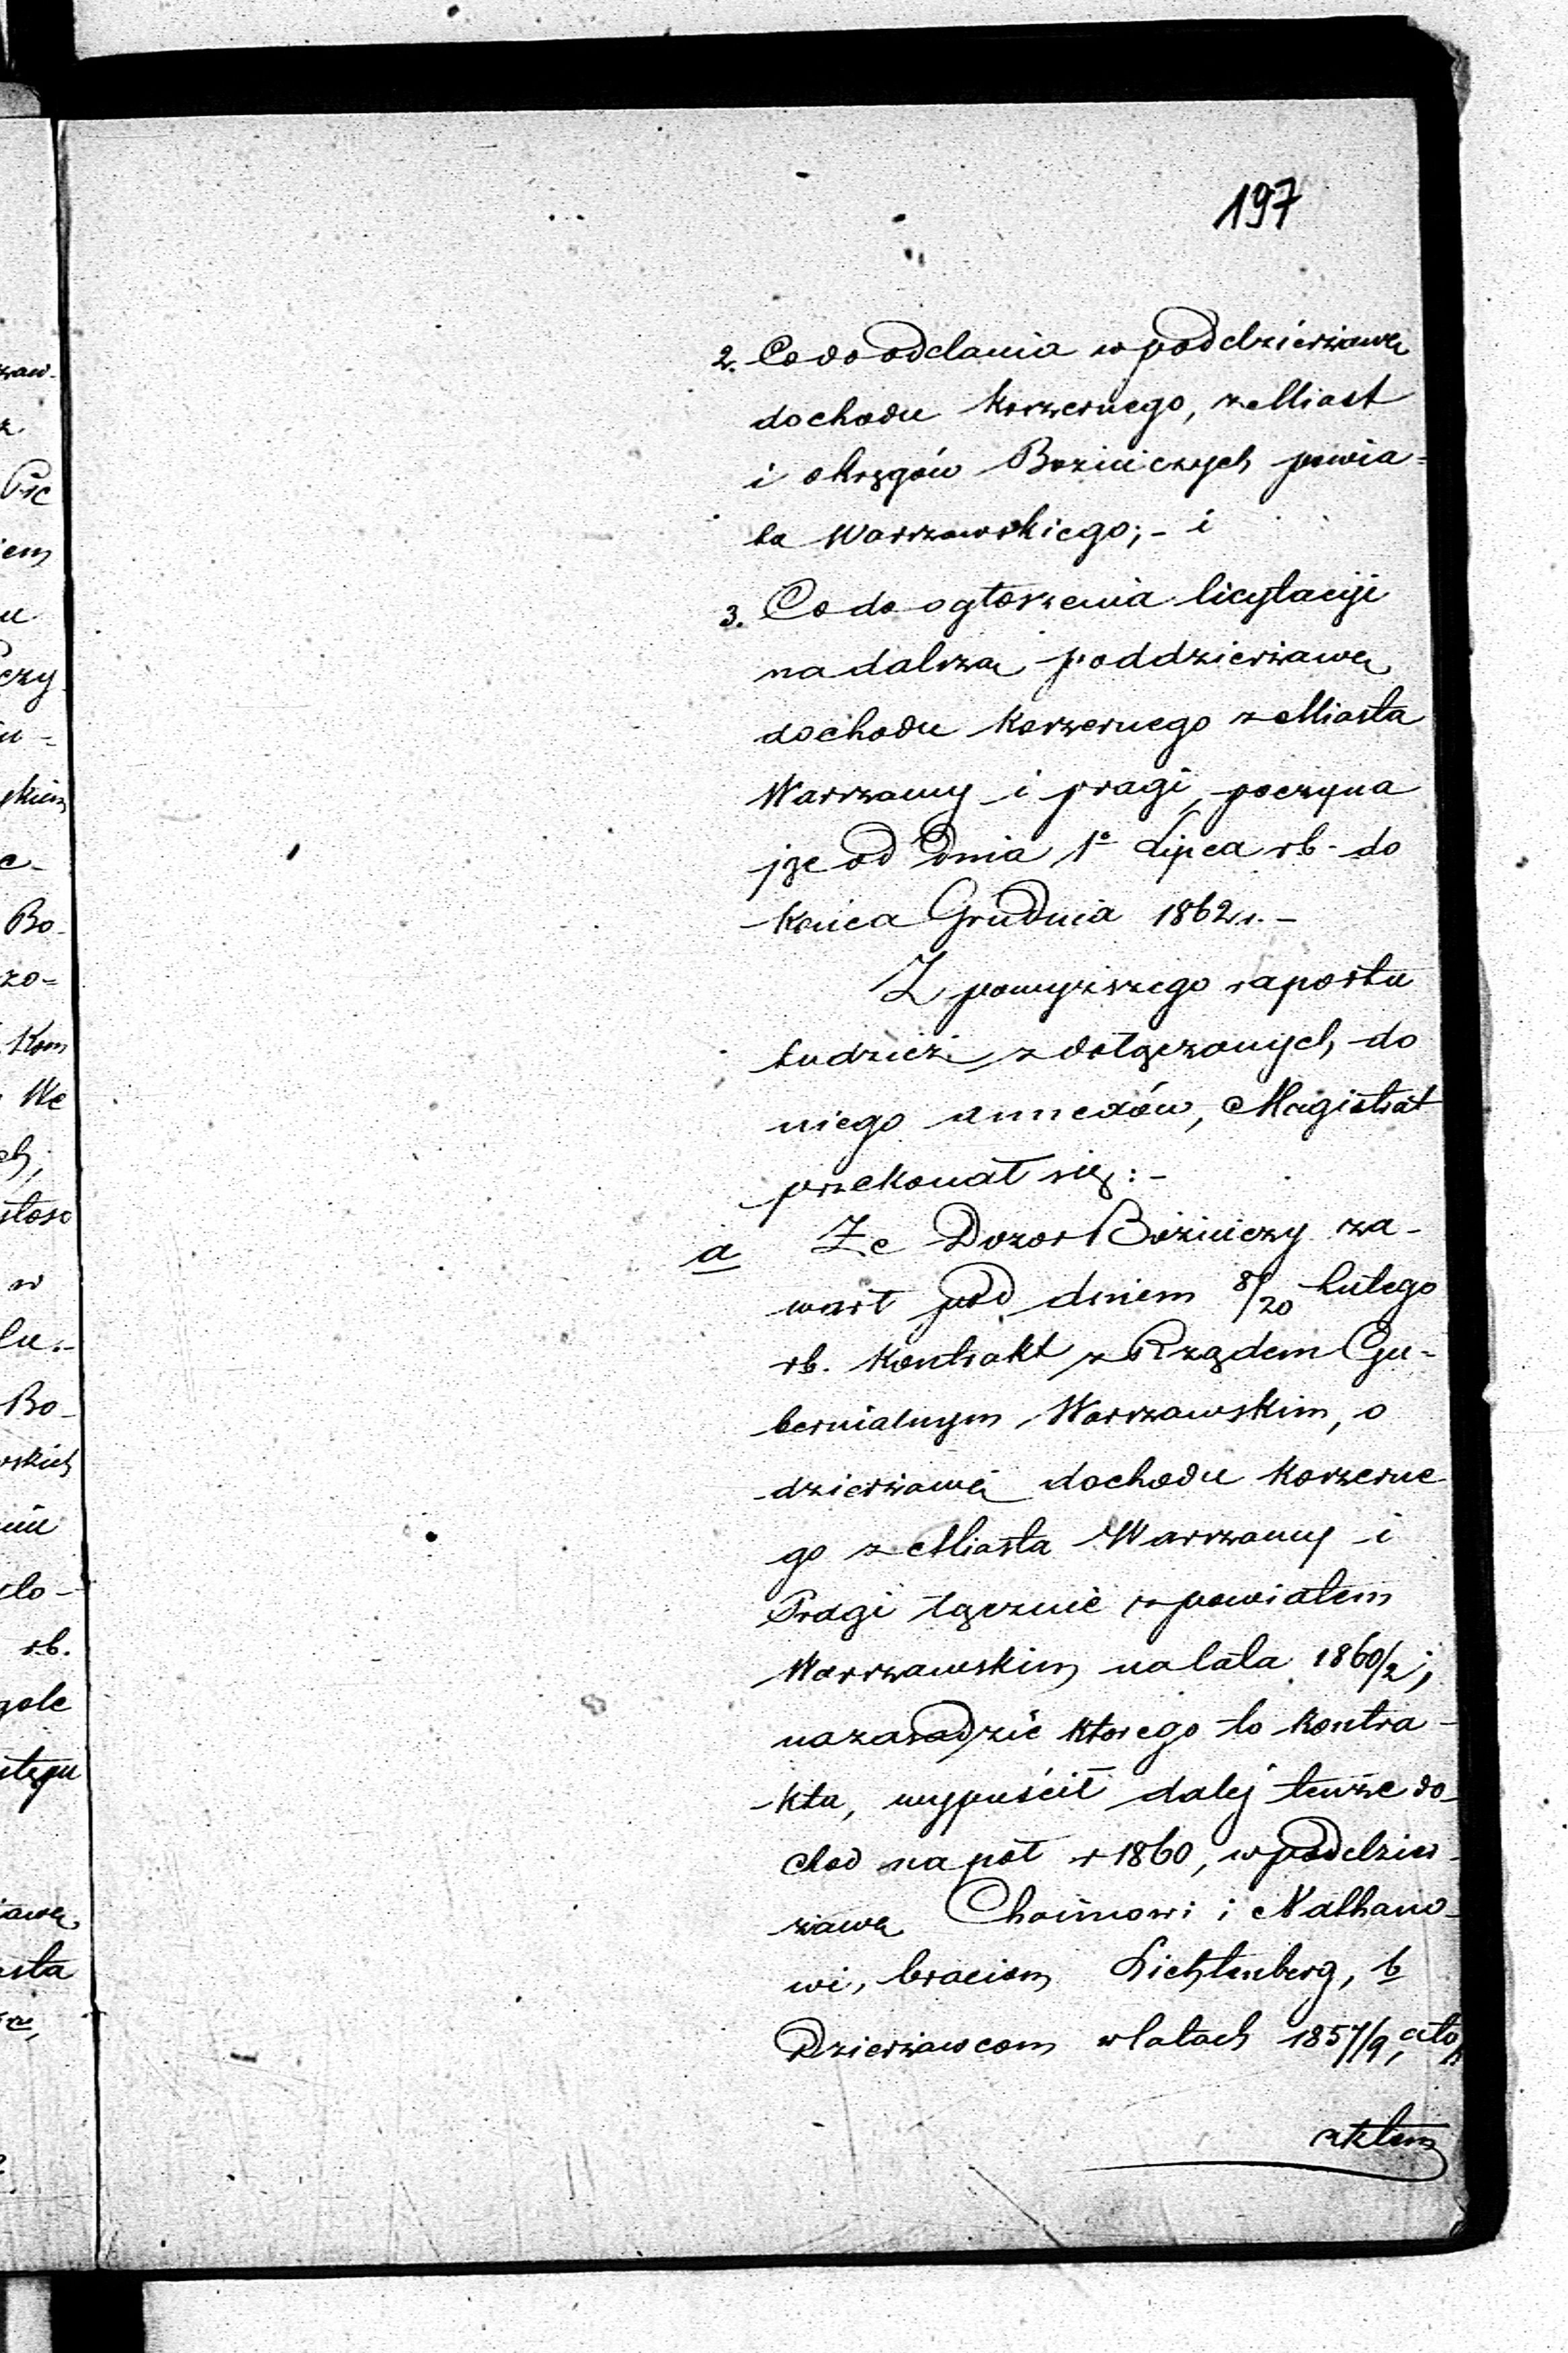 197
2. Co do oddania w poddzierżawę
dochodu koszernego, z Miast
i okręgów Bożniczych powia=
tu Warszawskiego;- i
3. Co do ogłoszenia licytacyi
na dalszą poddzierżawę
dochodu koszernego z Miasta
Warszawy i pragi, poczyna
jąc od Dnia 1o Lipca rb. do
końca Grudnia 1862 r.-
Z powyższego raportu
tudzież z dołączonych do
niego annexów, Magistrat
przekonał się:-
a Że Dozor Bóżniczy za-
warł pod dniem 8/20 Lutego
rb. kontrakt z Rządem Gu-
bernialnym Warszawskim, o
dzierżawę dochodu koszerne
go z Miasta Warszawy i
Pragi łącznie z powiatem
Warszawskim na lata 1860/2;
na zasadzie ktorego to kontra-
ktu, wypuścił dalej tenże do-
chod na pół r 1860, w poddzier-
żawę Chaimowi i Nathano-
wi, braciom Lichtenberg, b
Dzierżawcom w latach 1857/9, a to
z tem
zaw-
z
Pic
iem
u
czy
u-
skiem
c-
Bo-
zo=
Kom
We
ch,
stoso
w
lu.-
Bo-
wskich
nie
do-
rb.
gole
stępu
awę
asta